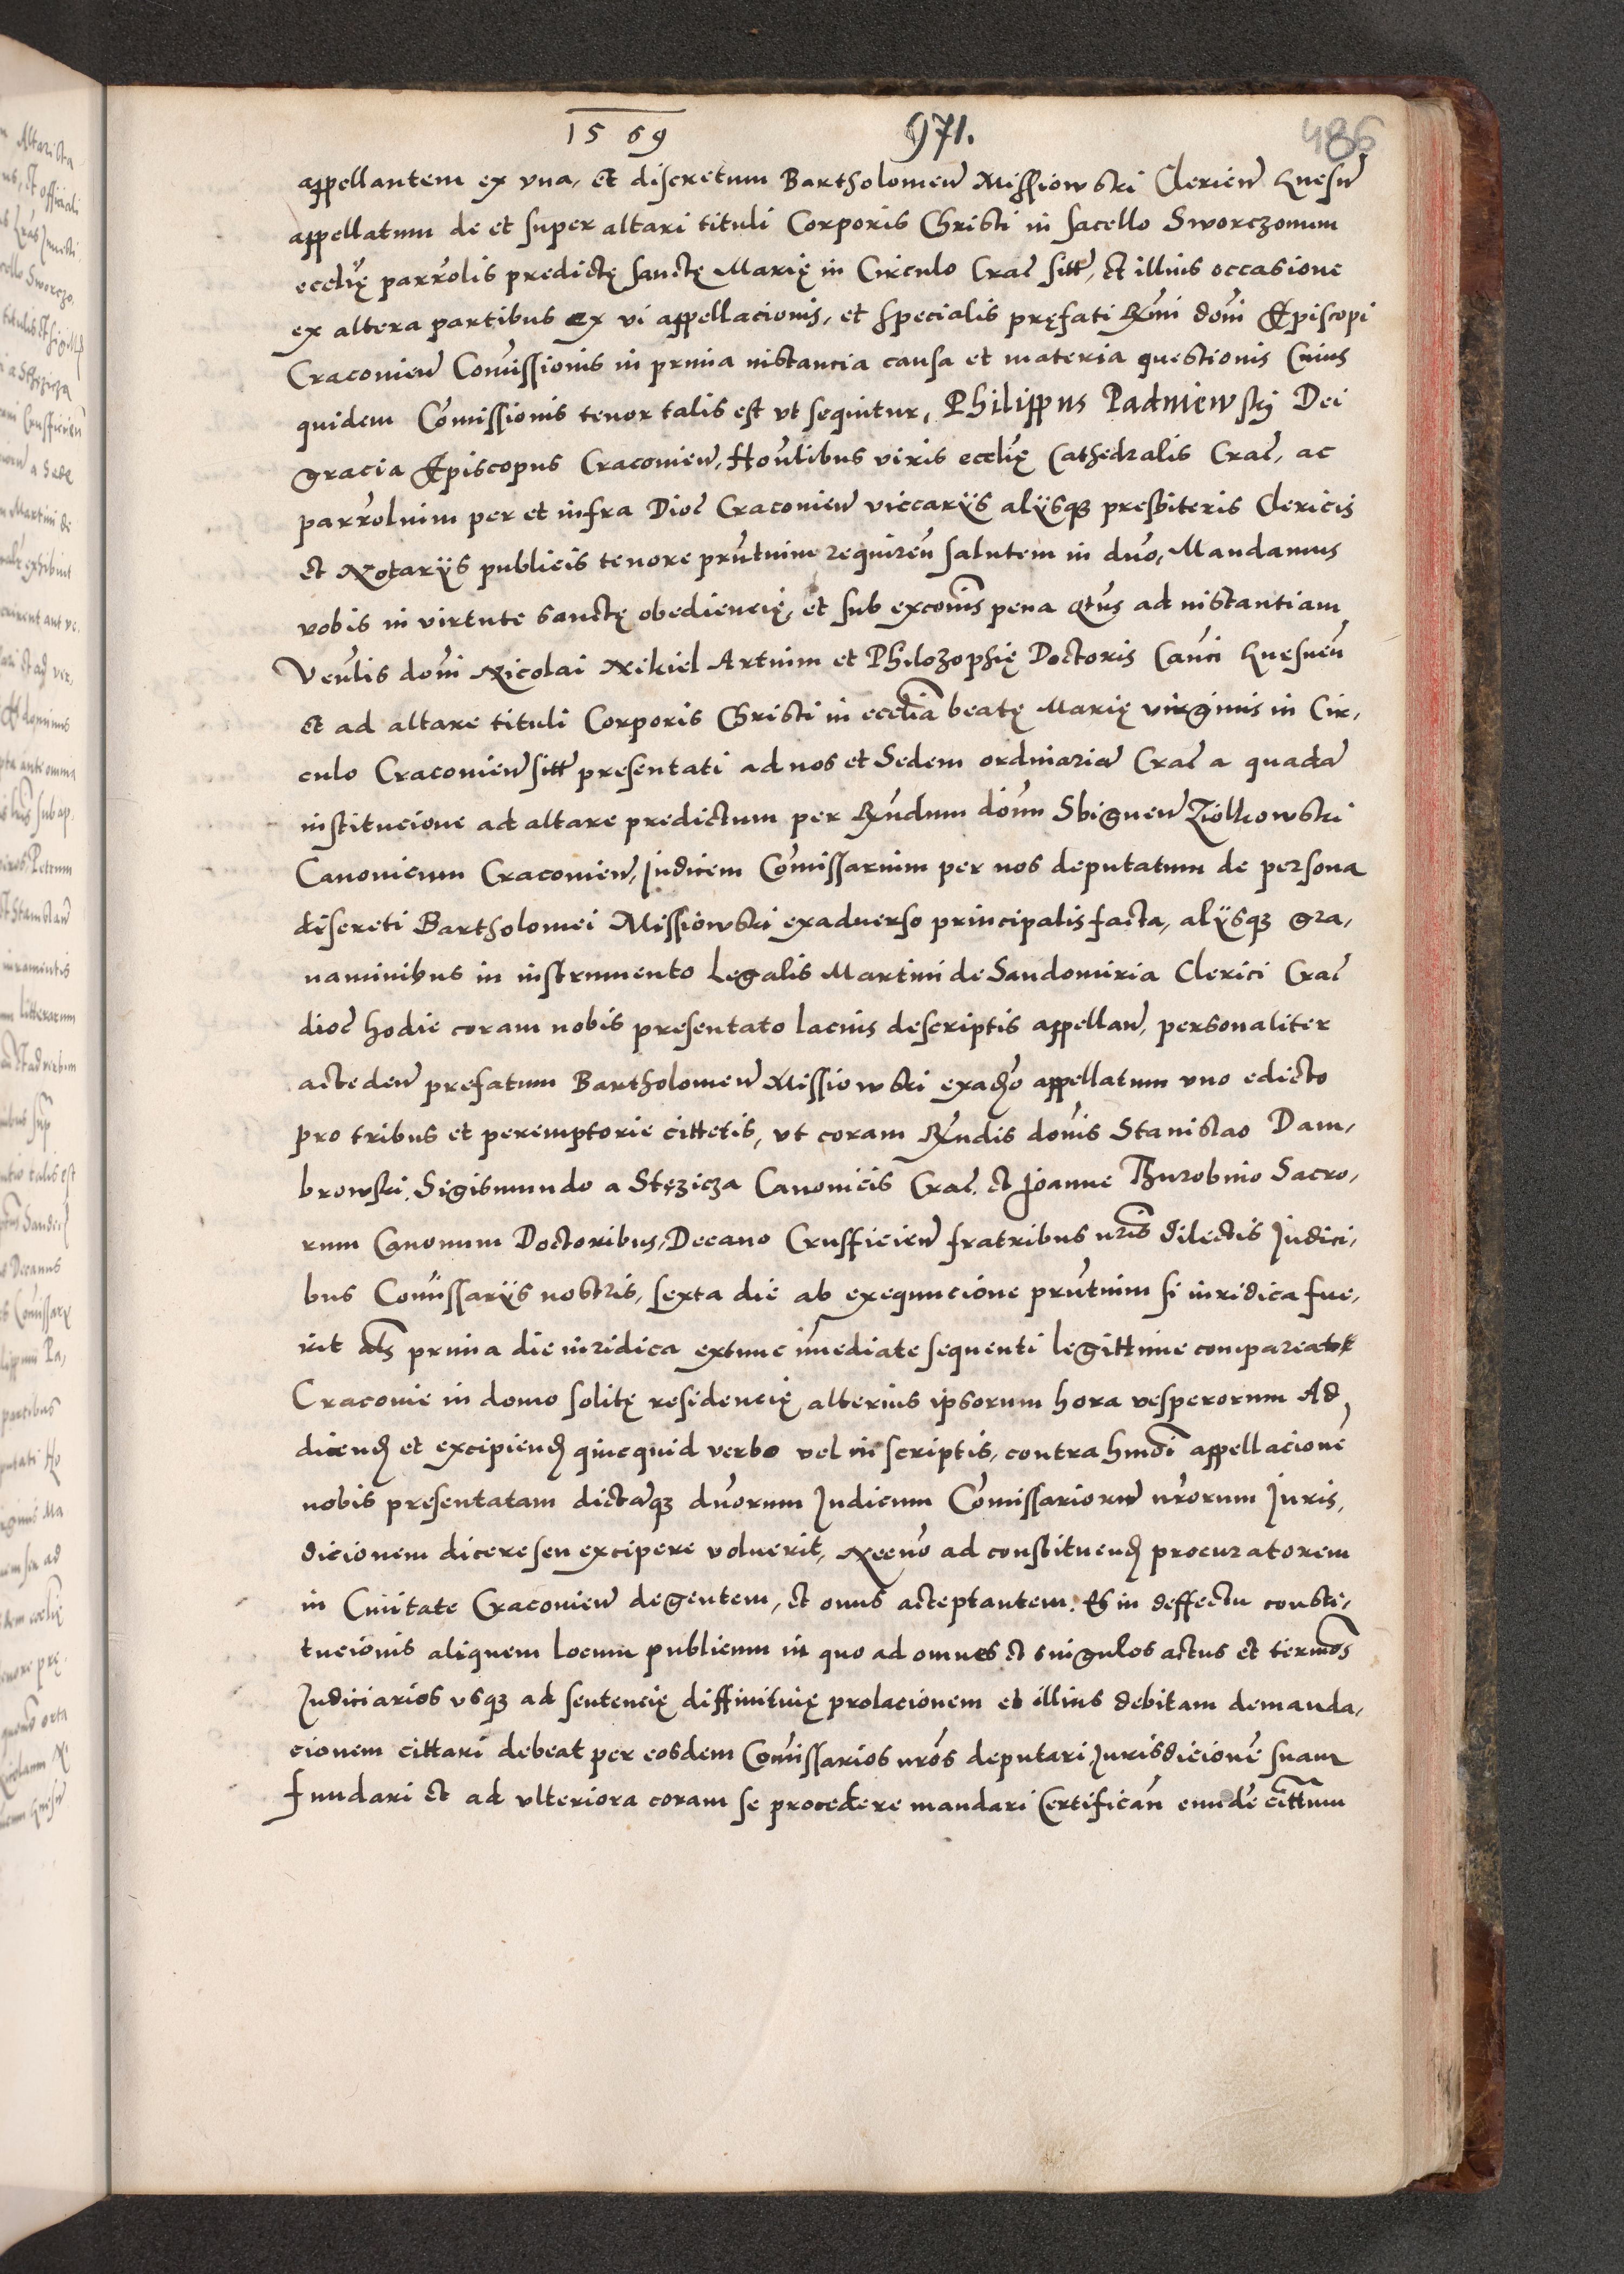 1569 971. 486
appellantem ex vna, et discretum Bartholomeum Missiowski Clericum Gnesn
appellatum de et super altari tituli Corporis Christi in sacello Sworczonum
ecclię parrolis predictę sanctę Marię in Circulo Crac sitt, et illius occasione
ex altera partibus ex vi appellacionis, et specialis pręfati Rmi domi Episcopi
Cracovien Comissionis in prima instancia causa et materia questionis Cuius
quidem Comissionis tenor talis est vt sequitur, Philippus Padniewskj Dei
gracia Episcopus Cracovien, Honlibus viris ecclię Cathedralis Crac, ac
parrolium per et infra Dioc Cracovien viccarijs alijsq presbiteris Clericis
et Notarijs publicis tenore prntium requiren salutem in dno, Mandamus
vobis in virtute sanctę obediencię, et sub excomis pena qtus ad instantiam
Venlis domi Nicolai Nikiel Artium et Philozophię Doctoris Canci Gnesnen
et ad altare tituli Corporis Christi in ecclia beatę Marię virginis in Cir,
culo Cracovien sitt presentati ad nos et Sedem ordinariam Crac a quadam
institucione ad altare predictum per Rndum domum Sbigneum Ziolkowski
Canonicum Cracovien, Iudicem Comissarium per nos deputatum de persona
discreti Bartholomei Missiowski exaduerso principalis facta, alijsq gra,
uaminibus in instrumento Legalis Martini de Sandomiria Clerici Crac
dioc hodie coram nobis presentato lacius descriptis appellan, personaliter
acceden prefatum Bartholomeum Missiowski exadso appellatum vno edicto
pro tribus et peremptorie cittetis, vt coram Rndis domis Stanislao Dam,
browski, Sigismundo a Stęzicza Canonicis Crac, et Joanne Thurobino Sacro,
rum Canonum Doctoribus, Decano Crusfficien fratribus nris dilectis Iudici,
bus Comissarijs nostris, sexta die ab exequucione prntium si iuridica fue,
rit als prima die iuridica extunc imediate sequenti legittime compareat
Cracovie in domo solitę residencię alterius ipsorum hora vesperorum Ad
dicend et excipiend quicquid verbo vel in scriptis, contra hmoi appellacione
nobis presentatam dictaq duorum Iudicum Comissariorum nrorum Iuris,
dicionem dicere seu excipere voluerit, Necno ad constituend procuratorem
in Ciuitate Cracovien degentem, et onus acceptantem. Et in deffectu consti,
tucionis aliquem locum publicum in quo ad omnes et singulos actus et termos
Iudiciarios vsq ad sentencię diffinitiuę prolacionem et illius debitam demanda,
cionem cittari debeat per eosdem Comissarios nros deputari, Iurisdicione suam
fundari et ad vlteriora coram se procedere mandari Certifican eunde cittum